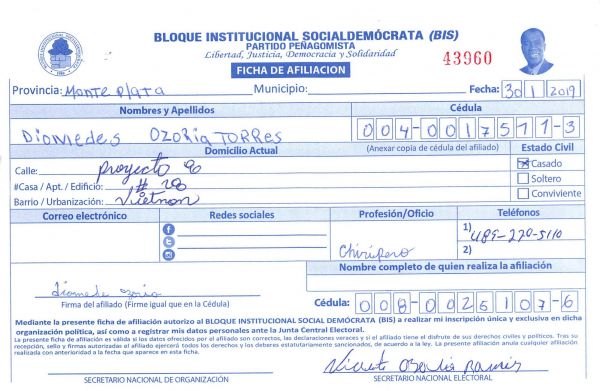 BLOQUE INSTITUCIONAL SOCIALDEMÓCRATA (BIS)
PARTIDO PEÑAGOMISTA
Libertad, Justicia, Democracia y Solidaridad
43960
FICHA DE AFILIACION
Provincia: Monte Plata Municipio: Fecha: 30/1/2019
Nombres y Apellidos Cédula
Diomedes Ozoria Torres 004-0017511-3
Domicilio Actual (Anexar copia de cédula del afiliado) Estado Civil
Calle: proyecto 8 Casado
#Casa / Apt. / Edificio: # 28 Soltero
Barrio / Urbanización: Vietnan Conviviente
Correo electrónico Redes sociales Profesión/Oficio Teléfonos
1) 489-270-5110
Chiripero 2)
Nombre completo de quien realiza la afiliación
diomede ozoria
Firma del afiliado (Firme igual que en la Cédula) Cédula: 008-0025107-6
Mediante la presente ficha de afiliación autorizo al BLOQUE INSTITUCIONAL SOCIAL DEMÓCRATA (BIS) a realizar mi inscripción única y exclusiva en dicha
organización política, así como a registrar mis datos personales ante la Junta Central Electoral.
La presente ficha de afiliación es válida si los datos ofrecidos por el afiliado son correctos, las declaraciones veraces y si el afiliado tiene el disfrute de sus derechos civiles y políticos. Tras su
recepción, sello y firmas autorizadas el afiliado ejercerá todos los derechos y los deberes estatutariamente sancionados, de acuerdo a la ley. La presente afiliación anula cualquier afiliación
realizada con anterioridad a la fecha que aparece en esta ficha.
Vicente Ozoria Ramires
SECRETARIO NACIONAL DE ORGANIZACIÓN SECRETARIO NACIONAL ELECTORAL